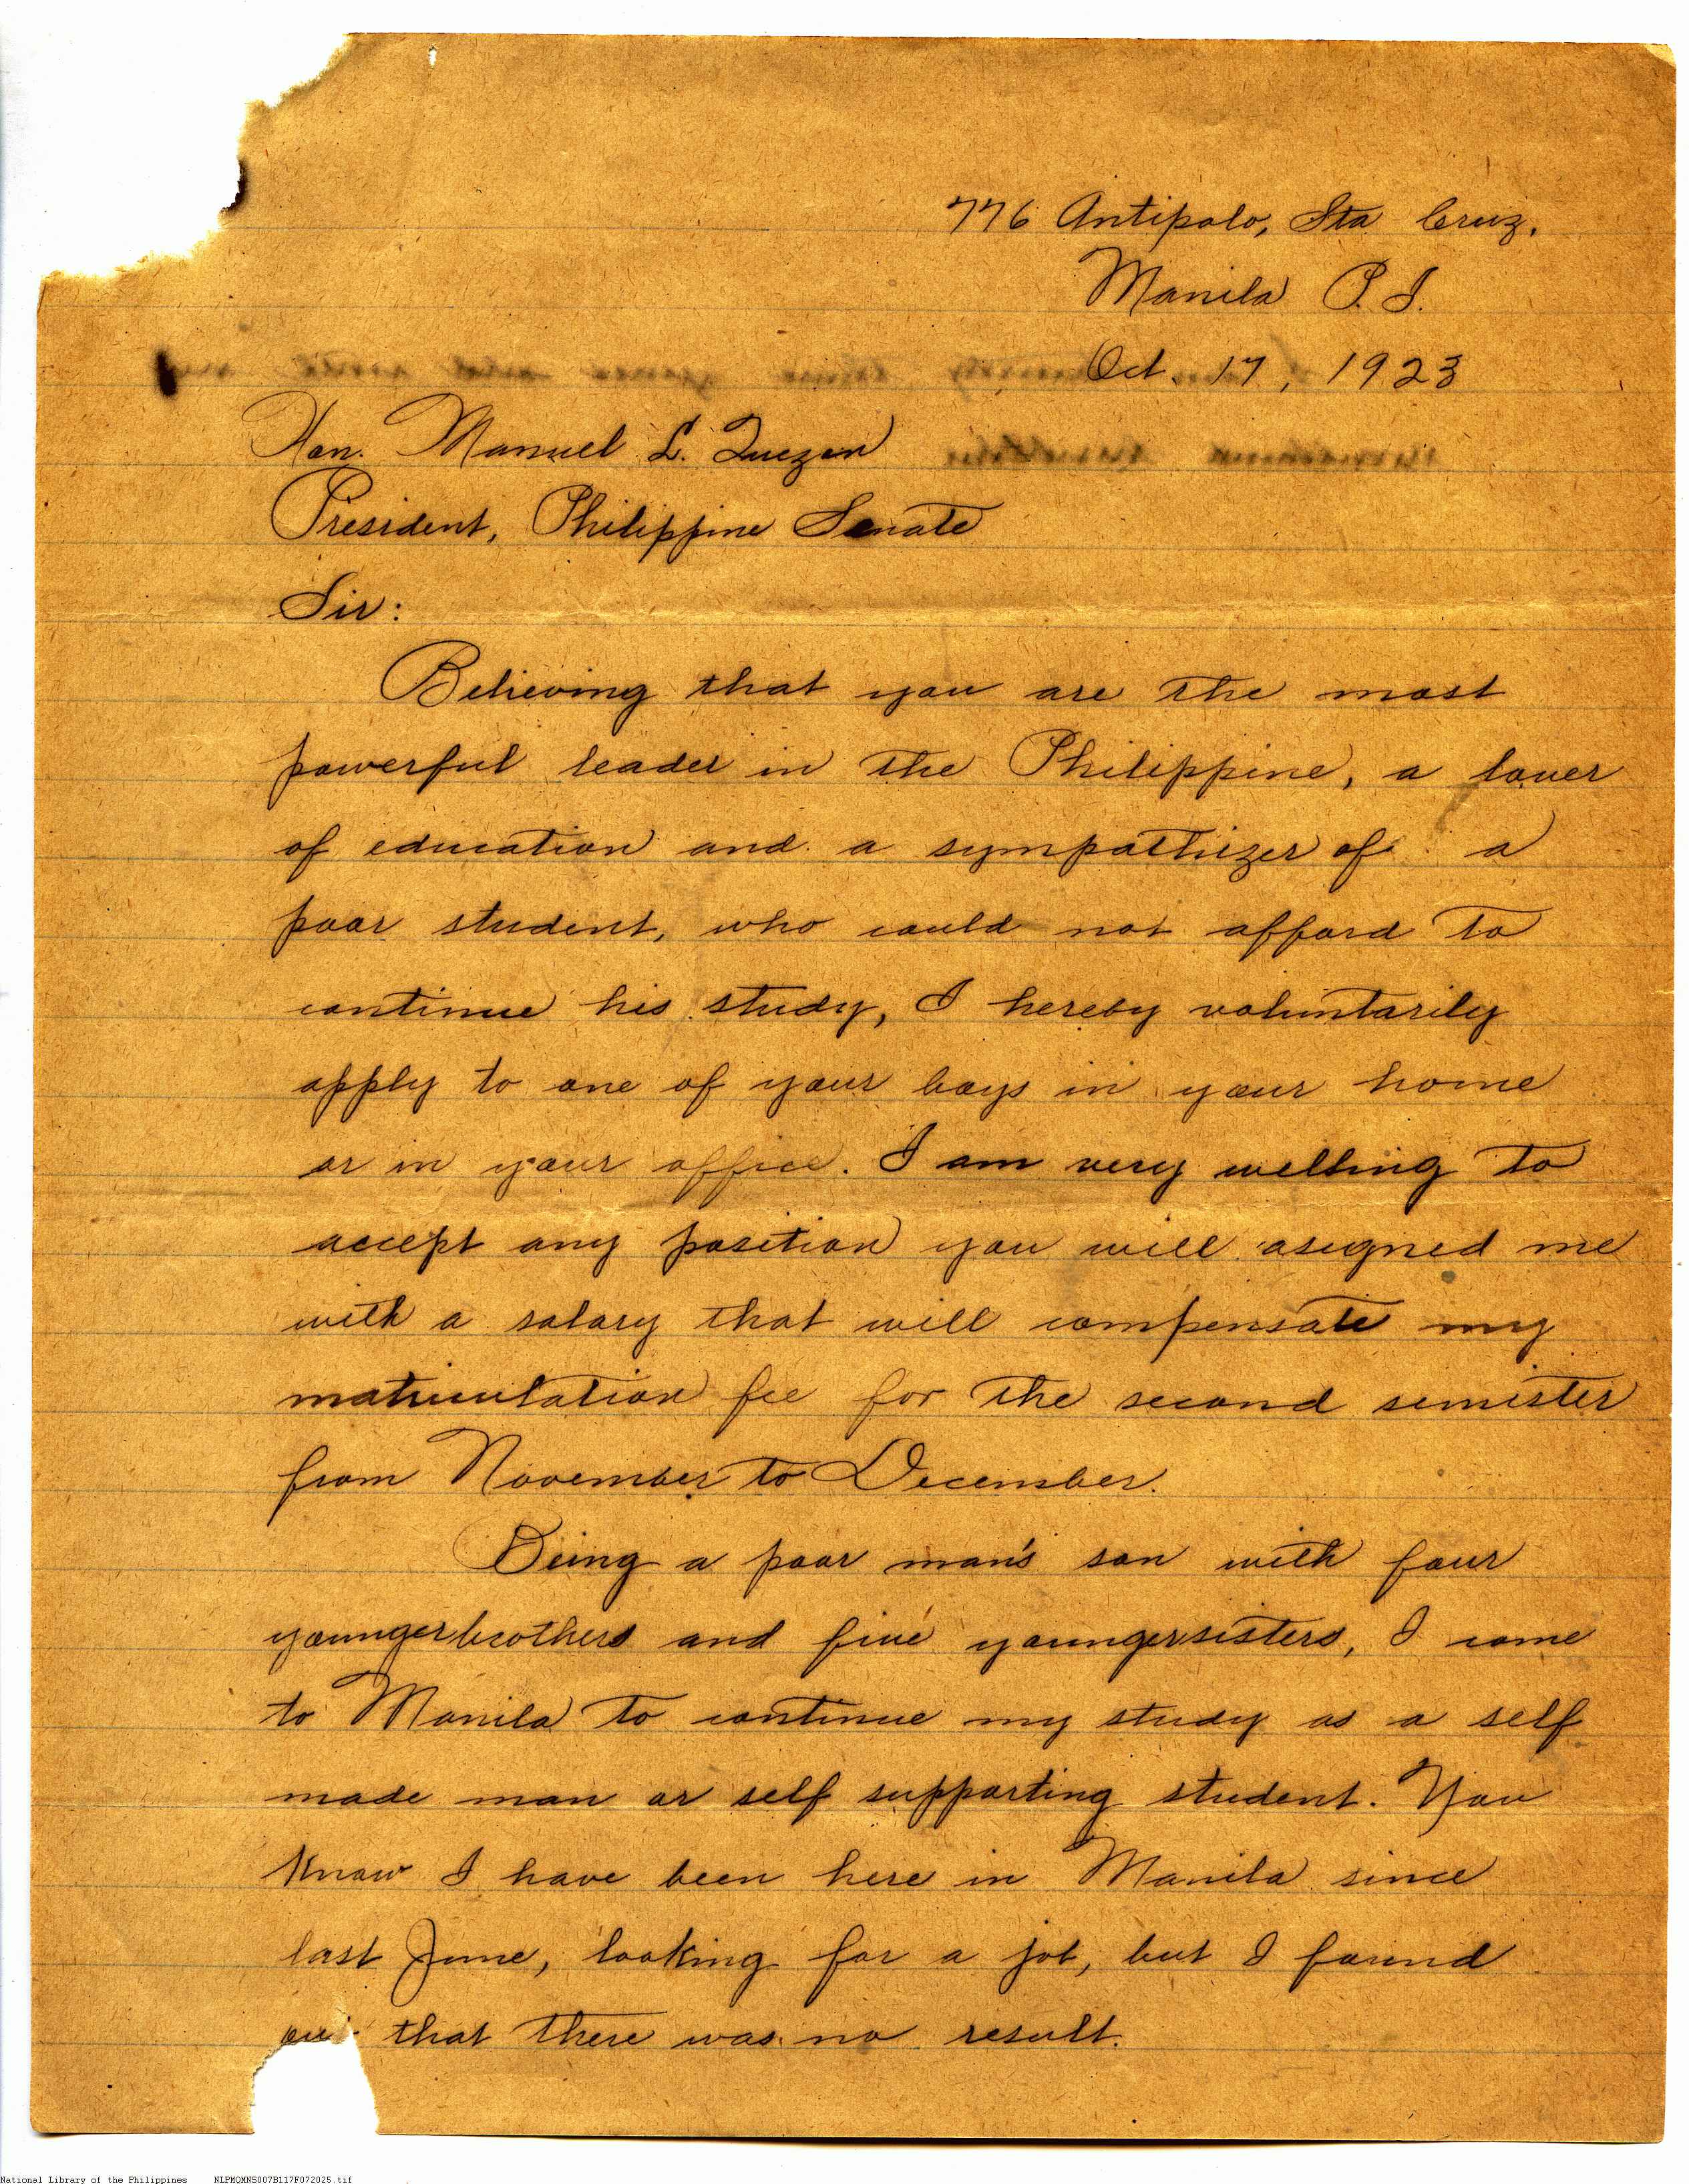 776 Antipolo, Sta Cruz.
Manila P. I.
Oct. 17, 1923
Hon. Manuel L. Quezon
President, Philippine Senate
Sir:
Believing that you are the most
powerful leader in the Philippine, a lover
of education and a sympathizer of a
poor student, who could not afford to
continue his study, I hereby voluntarily
apply to one of your boys in your home
or in your office. I am very welling to
accept any position you will asigned me
with a salary that will compensate my
matriculation fee for the second semister
from November to December.
Being a poor man's son with four
youngerbrothers and five youngersisters, I came
to Manila to continue my study as a self
made man or self supporting student. You
Know I have been here in Manila since
last June, looking for a job, but I found
out that there was no result.
National Library of the Philippines NLPMQMNS007B117F072025.tif